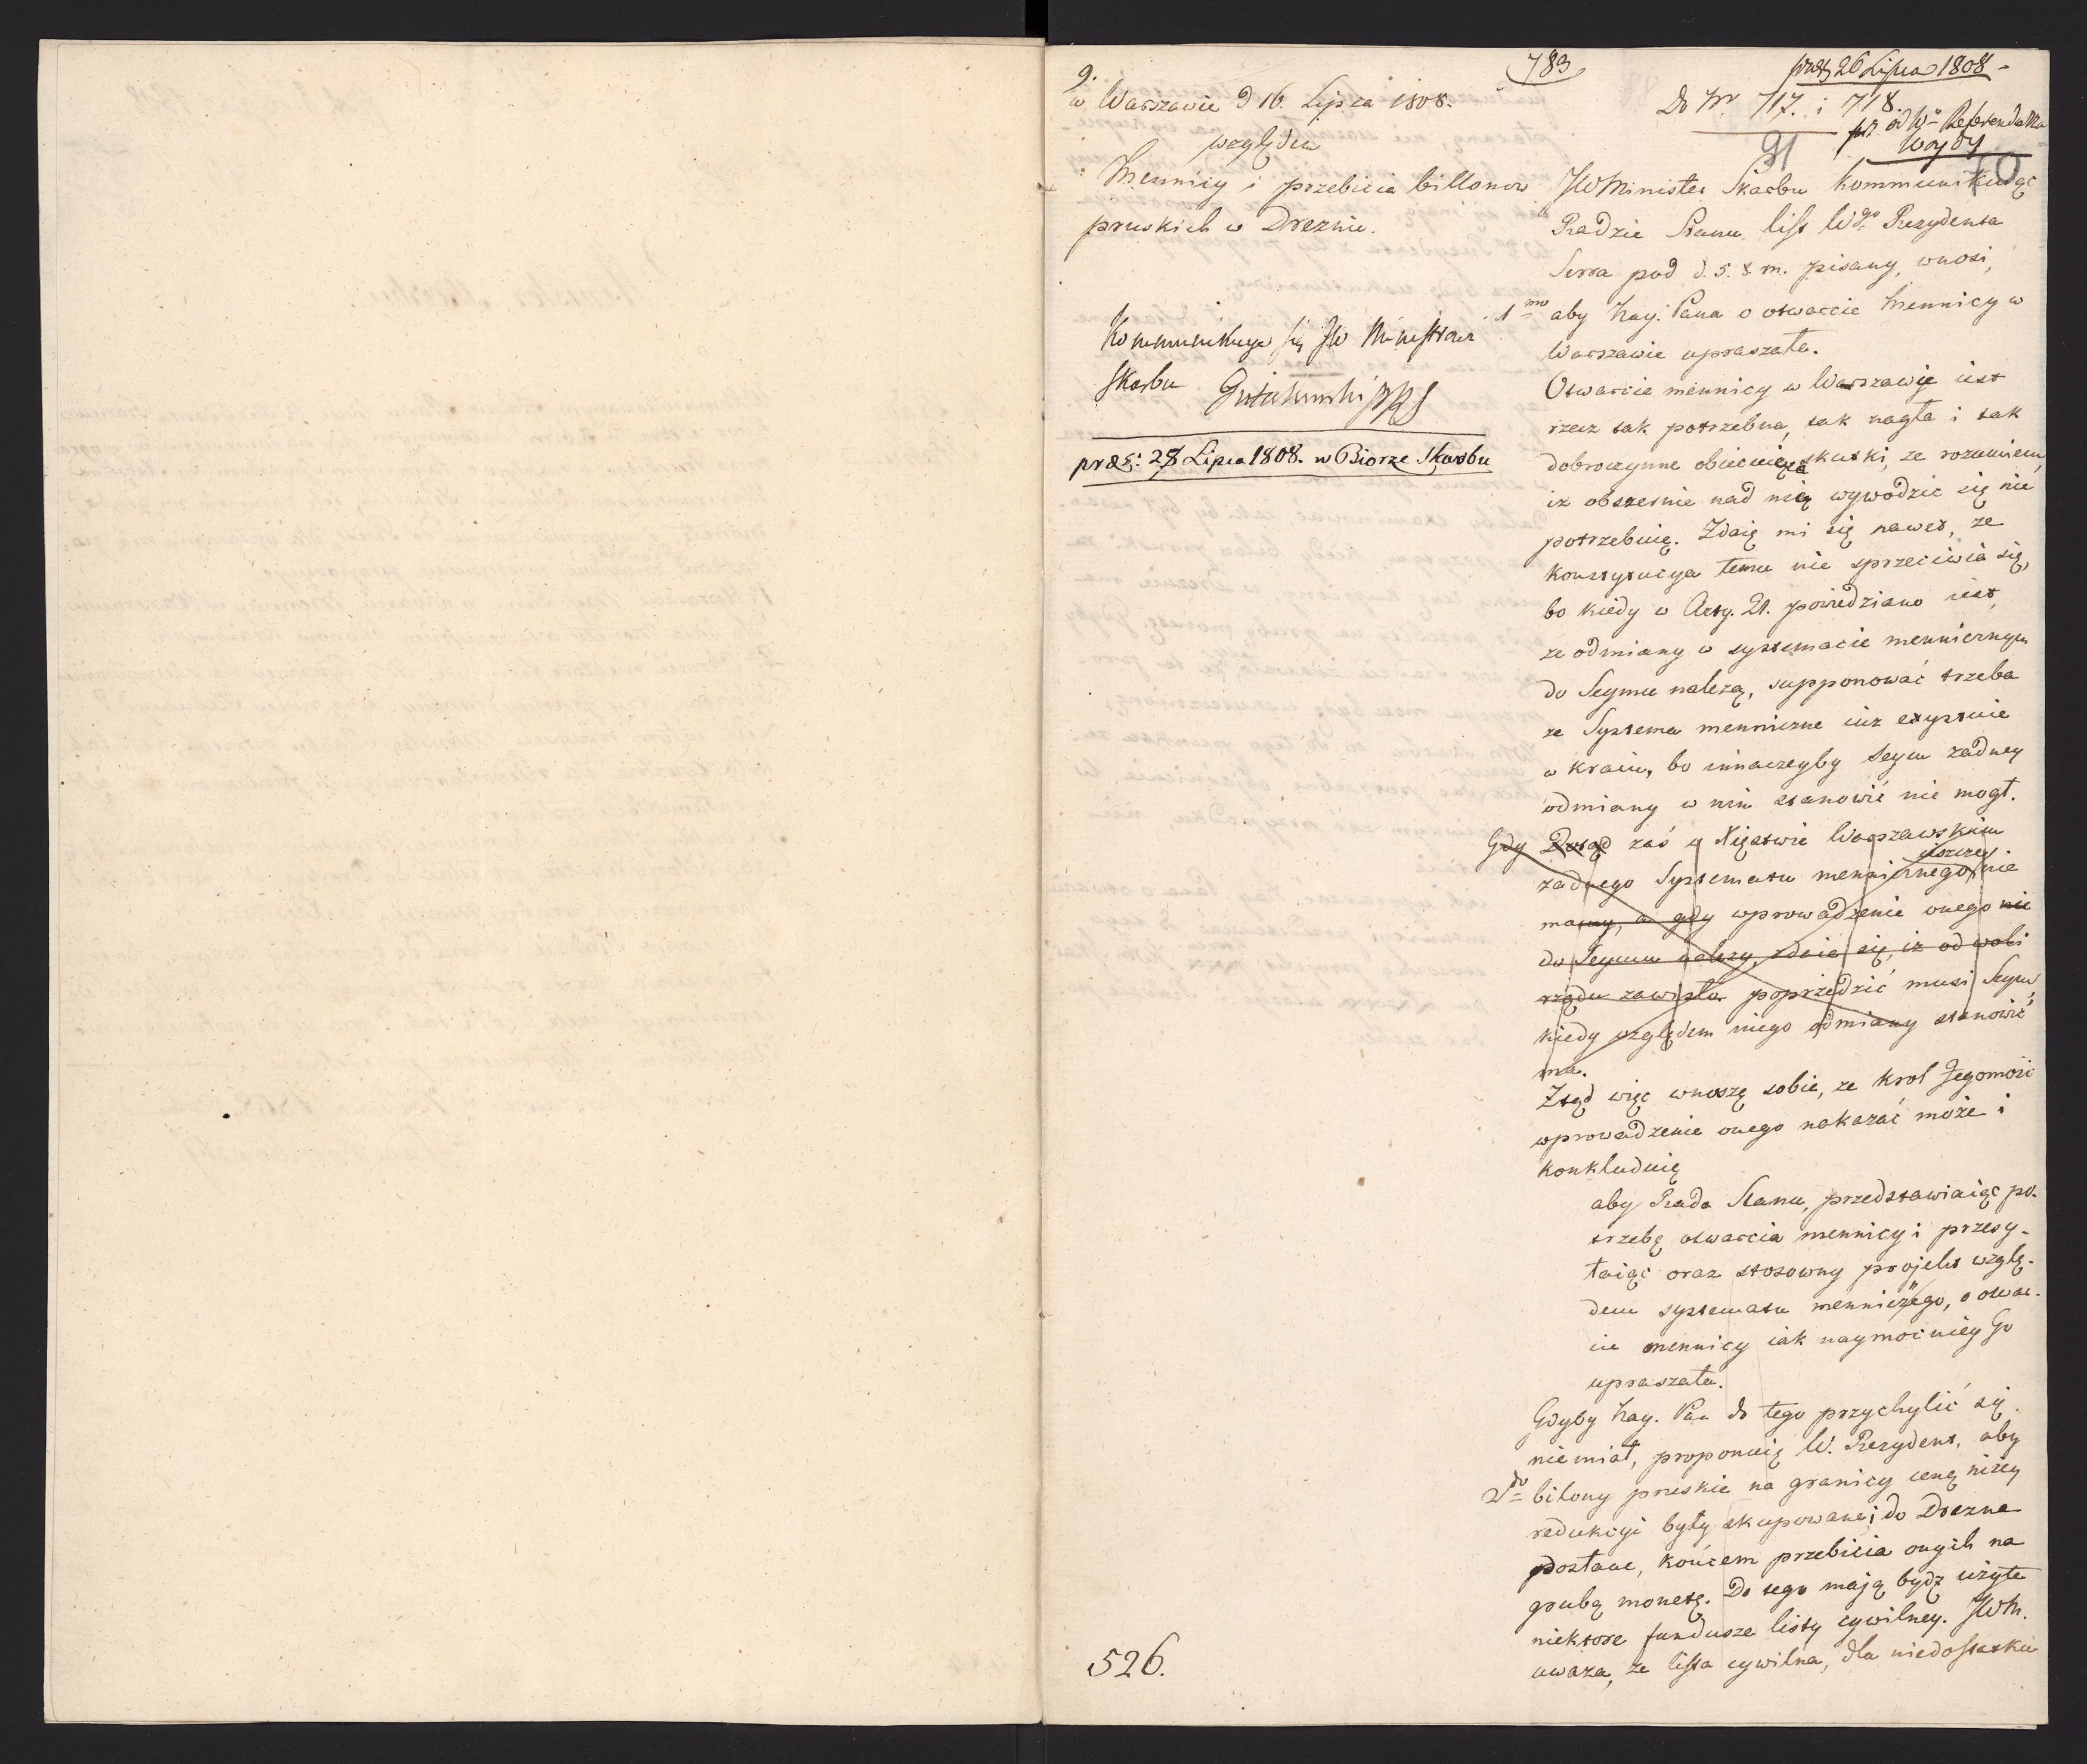 9.
w Warszawie d 16. Lipca 1808.
względem
Mennicy i przebicia billonow
pruskich w Dreznie.
Kommunikuje się JW Ministrowi
Skarbu
præs: 28 Lipca 1808. w Biorze Skarbu
526.
783
præs 26 Lipca 1808 -
Do Nr 717. i 718.
pr. od Wo Referendarza
Woydy
91
70
JWMinister Skarbu kommunikuiąc
Radzie Stanu list Wgo Rezydenta
Serra pod d. 5. t. m. pisany, wnosi,
1mo aby Nay. Pana o otwarcie Mennicy w
Warszawie upraszała.
Otwarcie mennicy w Warszawie iest
rzecz tak potrzebna, tak nagła i tak
dobroczynne obiecuiąca skutki, ze rozumiem
iz obszernie nad nią wywodzic się nie
potrzebuię. Zdaię mi się nawet, ze
konstytucya temu nie sprzeciwia się,
bo kiedy w Arty. 21. powiedziano iest,
ze odmiany w systemacie mennicznym
do Seymu nalezą, supponować trzeba
ze Systema menniczne iuz exystuie
w kraiu, bo innaczeyby Seym zadney
odmiany w nim stanowić nie mogł.
Gdy Dotąd zaś w Xięstwie Warszawskim
zadnego Systematu mennicznego ieszcze nie
mamy, a gdy wprowadzenie onego nie
do Seymu nalezy, zdaie się, iz od woli
rządu zawisła poprzedzić musi Seym,
kiedy względem niego odmiany stanowić
ma.
Ztąd więc wnoszę sobie, ze Krol Jegomość
wprowadzenie onego nakazać może i
konkluduię
aby Rada Stanu, przedstawiaiąc po-
trzebę otwarcia mennicy i przesy-
łaiąc oraz stosowny projekt wzglę-
dem systematu menniczego, o otwar-
cie mennicy iak naymocniey Go
upraszała.
Gdyby Nay. Pan do tego przychylić się
nie miał, proponuię W. Rezydent, aby
2do bilony pruskie na granicy ceną niżey
redukcyi były skupowane i do Drezna
posłane, końcem przebicia onych na
grubą monetę. Do tego mają bydź użyte
niektore fundusze listy cywilney. JWM.
uważa, ze lista cywilna, dla niedostatku